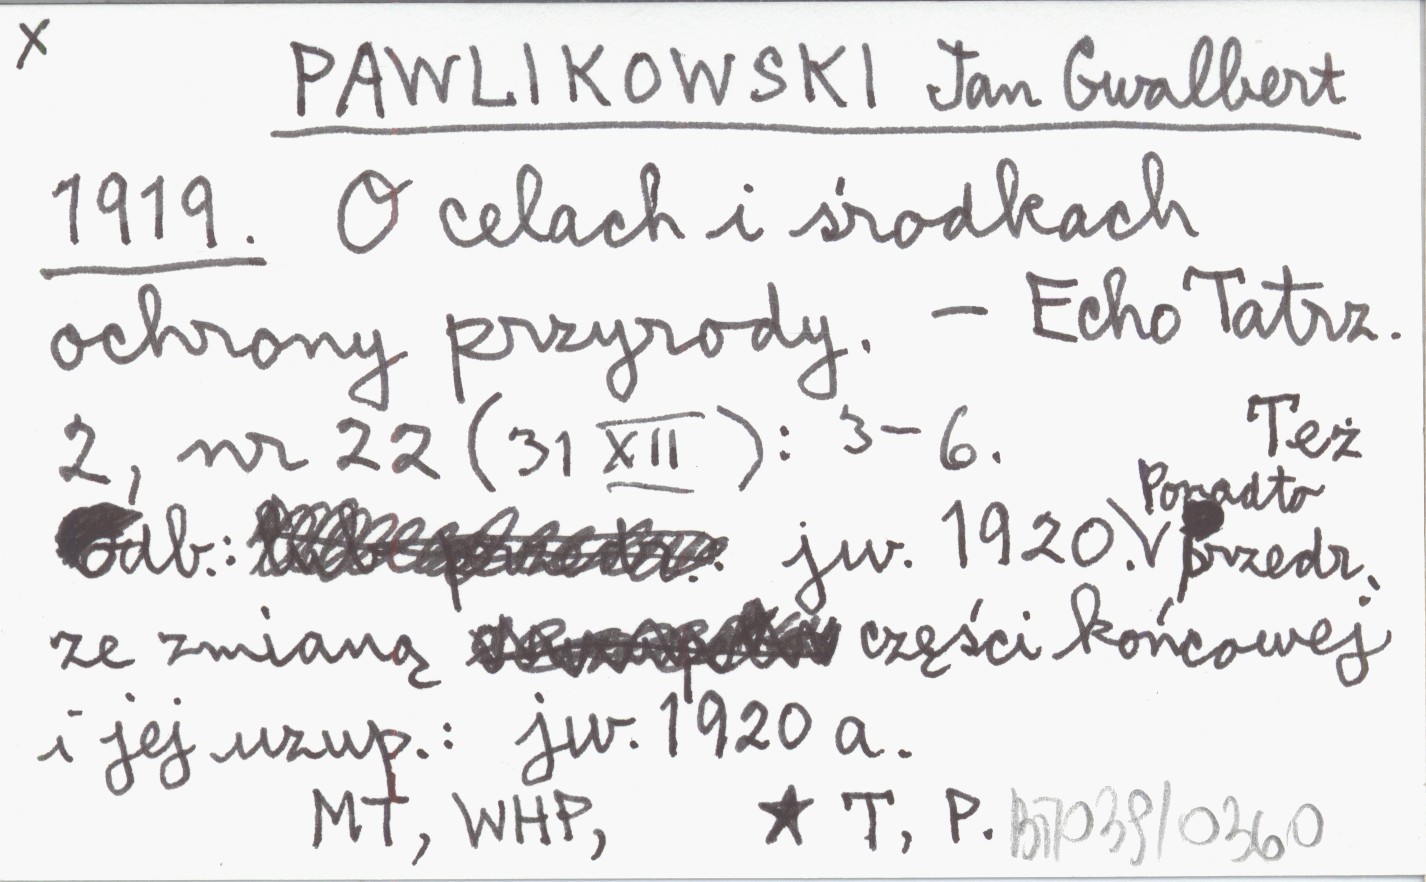 x
PAWLIKOWSKI Jan Gwalbert
1919. O celach i środkach
ochrony przyrody. – Echo Tatrz.
2, nr 22 (31 XII): 3–6. Też
odb.: jw. 1920. Ponadto przedr.
ze zmianą części końcowej
i jej uzup.: jw. 1920 a.
MT, WHP, ★ T, P.